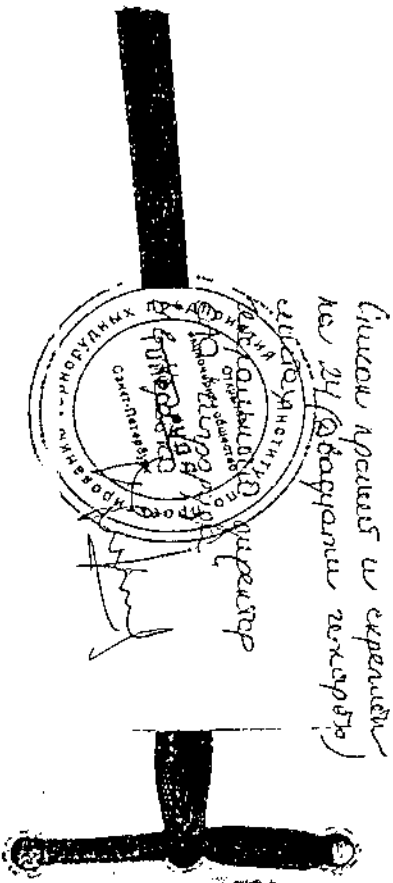 Список прошит и скреплён
на 24 (двадцати четырёх)
листах
Генеральный директор
ИНСТИТУТ ПО ПРОЕКТИРОВАНИЮ ГОРНОРУДНЫХ ПРЕДПРИЯТИЙ
Открытое
акционерное общество
Гипроруда
Санкт-Петербург